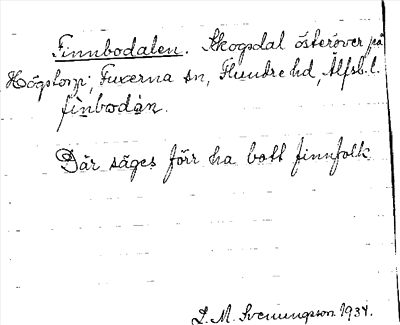 Finnbodalen. Skogsdal österöver på
Högstorp, Fuxerna sn, Flundre hd, Älfsb. l.
finbodàn.
Där säges förr ha bott finnfolk
L. M. Svenungsson 1934.